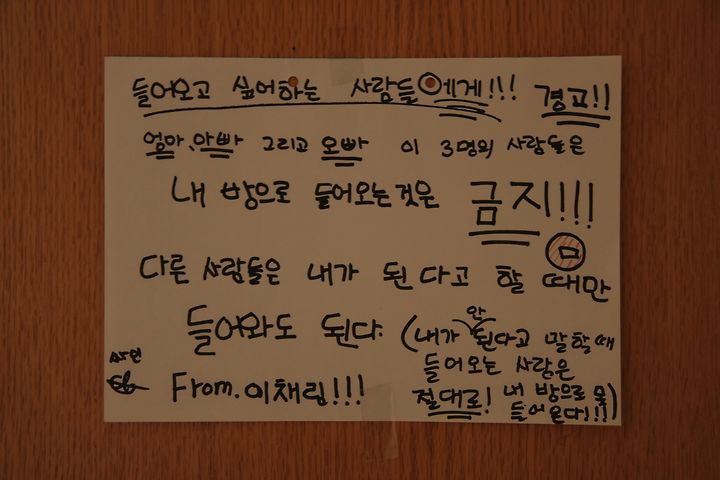 들어오고 싶어하는 사람들에게!!! 경고!!
엄마, 아빠 그리고 오빠 이 3명의 사람들은
내 방으로 들어오는것은 금지!!!
다른 사람들은 내가 된다고 할 때만
들어와도 된다. (내가 안된다고 말할때
들어오는 사람은
절대로! 내 방으로 못
들어온다!!!)
싸인
From. 이채림!!!